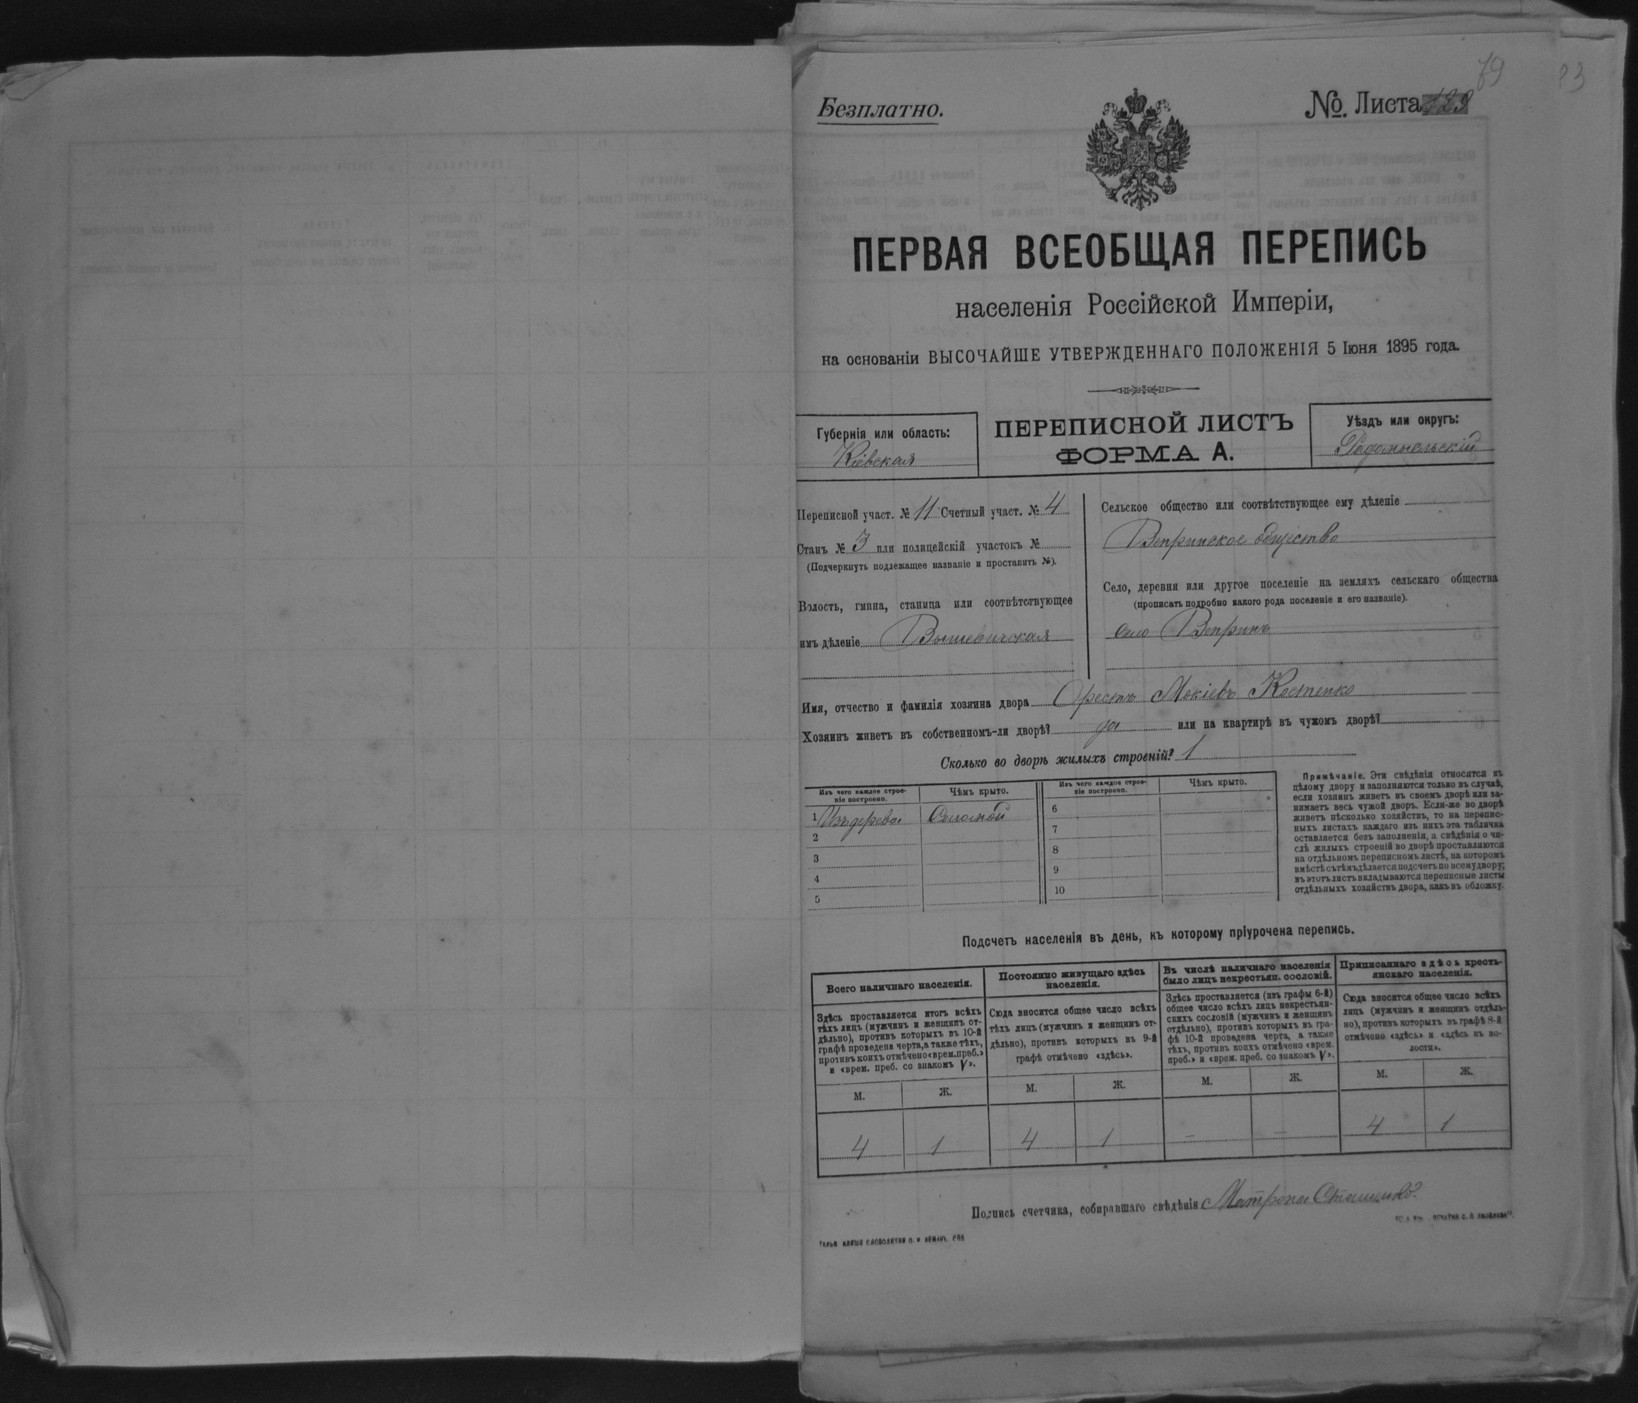 79
Безплатно.
№. Листа 123
ПЕРВАЯ ВСЕОБЩАЯ ПЕРЕПИСЬ
населенія Россійской Имперіи,
на основаніи ВЫСОЧАЙШЕ УТВЕРЖДЕННАГО ПОЛОЖЕНІЯ 5 Іюня 1895 года.
Губернія или область:
Кіевская
ПЕРЕПИСНОЙ ЛИСТЪ
ФОРМА А.
Уѣздъ или округъ:
Радомысльскій
Переписной участ. № 11 Счетный участ. № 4
Станъ № 3 или полицейскій участокъ №
(Подчеркнуть подлежащее названіе и проставить №).
Волость, гмина, станица или соотвѣтствующее
имъ дѣленіе Вышевичская
Сельское общество или соотвѣтствующее ему дѣленіе
Вепринское общество
Село, деревня или другое поселеніе на земляхъ сельскаго общества
(прописать подробно какого рода поселеніе и его названіе).
село Вепринъ
Имя, отчество и фамилія хозяина двора Орестъ Мокіевъ Костенко
Хозяинъ живетъ въ собственномъ-ли дворѣ? да или на квартирѣ въ чужомъ дворѣ?
Сколько во дворѣ жилыхъ строеній? 1
Изъ чего каждое строе-
ніе построено.
Чѣмъ крыто.
Изъ чего каждое строе-
ніе построено.
Чѣмъ крыто.
1 Изъ дерева Соломой
2
3
4
5
6
7
8
9
10
Примѣчаніе. Эти свѣдѣнія относятся къ
цѣлому двору и заполняются только въ случаѣ,
если хозяинъ живетъ въ своемъ дворѣ или за-
нимаетъ весь чужой дворъ. Если-же во дворѣ
живетъ нѣсколько хозяйствъ, то на перепис-
ныхъ листахъ каждаго изъ нихъ эта табличка
оставляется безъ заполненія, а свѣдѣнія о чи-
слѣ жилыхъ строеній во дворѣ проставляются
на отдѣльномъ переписномъ листѣ, на которомъ
вмѣстѣ съ тѣмъ дѣлается подсчетъ по всему двору;
въ этотъ листъ вкладываются переписные листы
отдѣльныхъ хозяйствъ двора, какъ въ обложку.
Подсчетъ населенія въ день, къ которому пріурочена перепись.
Всего наличнаго населенія.
Здѣсь проставляется итогъ всѣхъ
тѣхъ лицъ (мужчинъ и женщинъ от-
дѣльно), противъ которыхъ въ 10-й
графѣ проведена черта, а также тѣхъ,
противъ коихъ отмѣчено «врем. преб.»
и «врем. преб. со знакомъ V».
М. Ж.
4 1
Постоянно живущаго здѣсь
населенія.
Сюда вносится общее число всѣхъ
тѣхъ лицъ (мужчинъ и женщинъ от-
дѣльно), противъ которыхъ въ 9-й
графѣ отмѣчено «здѣсь».
М. Ж.
4 1
Въ числѣ наличнаго населенія
было лицъ некрестьян. сословій.
Здѣсь проставляется (изъ графы 6-й)
общее число всѣхъ лицъ некрестьян-
скихъ сословій (мужчинъ и женщинъ
отдѣльно), противъ которыхъ въ гра-
фѣ 10-й проведена черта, а также
тѣхъ, противъ коихъ отмѣчено «врем.
преб.» и «врем. преб. со знакомъ V».
М. Ж.
– –
Приписаннаго здѣсь кресть-
янскаго населенія.
Сюда вносится общее число всѣхъ
лицъ (мужчинъ и женщинъ отдѣль-
но), противъ которыхъ въ графѣ 8-й
отмѣчено «здѣсь» и «здѣсь въ во-
лости».
М. Ж.
4 1
Подпись счетчика, собиравшаго свѣдѣнія